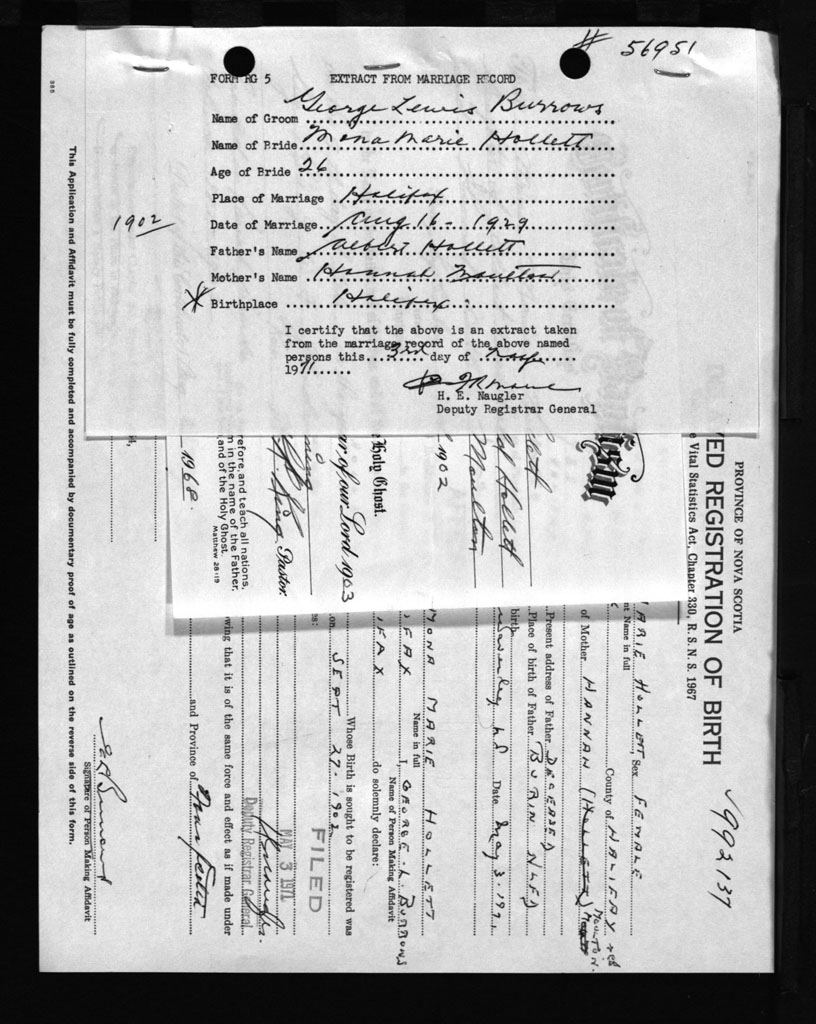 # 56951
FORM RG 5 EXTRACT FROM MARRIAGE RECORD
Name of Groom George Lewis Burrows
Name of Bride Mona Marie Hollett
Age of Bride 26
Place of Marriage Halifax
1902 Date of Marriage Aug 16 - 1929
Father's Name Albert Hollett
Mother's Name Hannah Moulton
* Birthplace Halifax
I certify that the above is an extract taken
from the marriage record of the above named
persons this 3rd day of
1971
H. E. Naugler
Deputy Registrar General
PROVINCE OF NOVA SCOTIA
ED REGISTRATION OF BIRTH
e Vital Statistics Act, Chapter 330, R.S.N.S. 1967
992137
ARIE HOLLETT Sex FEMALE
nt Name in full
County of HALIFAX
of Mother HANNAH (HOLLETT) MOULTON
Present address of Father DECEASED
Place of birth of Father BURIN NLFD
birth
Date May 3. 1971
lett
d Hollett
Moulton
1902
Holy Ghost.
ar of our Lord 1903
King Pastor.
refore, and teach all nations,
m in the name of the Father,
and of the Holy Ghost.
Matthew 28:19
1968
MONA MARIE HOLLETT
Name in full
I, GEORGE L. BURROWS
Name of Person Making Affidavit
IFAX
IFAX
do solemnly declare:
Whose Birth is sought to be registered was
on SEPT 27. 1902
FILED
MAY 3 1971
Deputy Registrar General
owing that it is of the same force and effect as if made under
and Province of Nova Scotia
Signature of Person Making Affidavit
This Application and Affidavit must be fully completed and accompanied by documentary proof of age as outlined on the reverse side of this form.